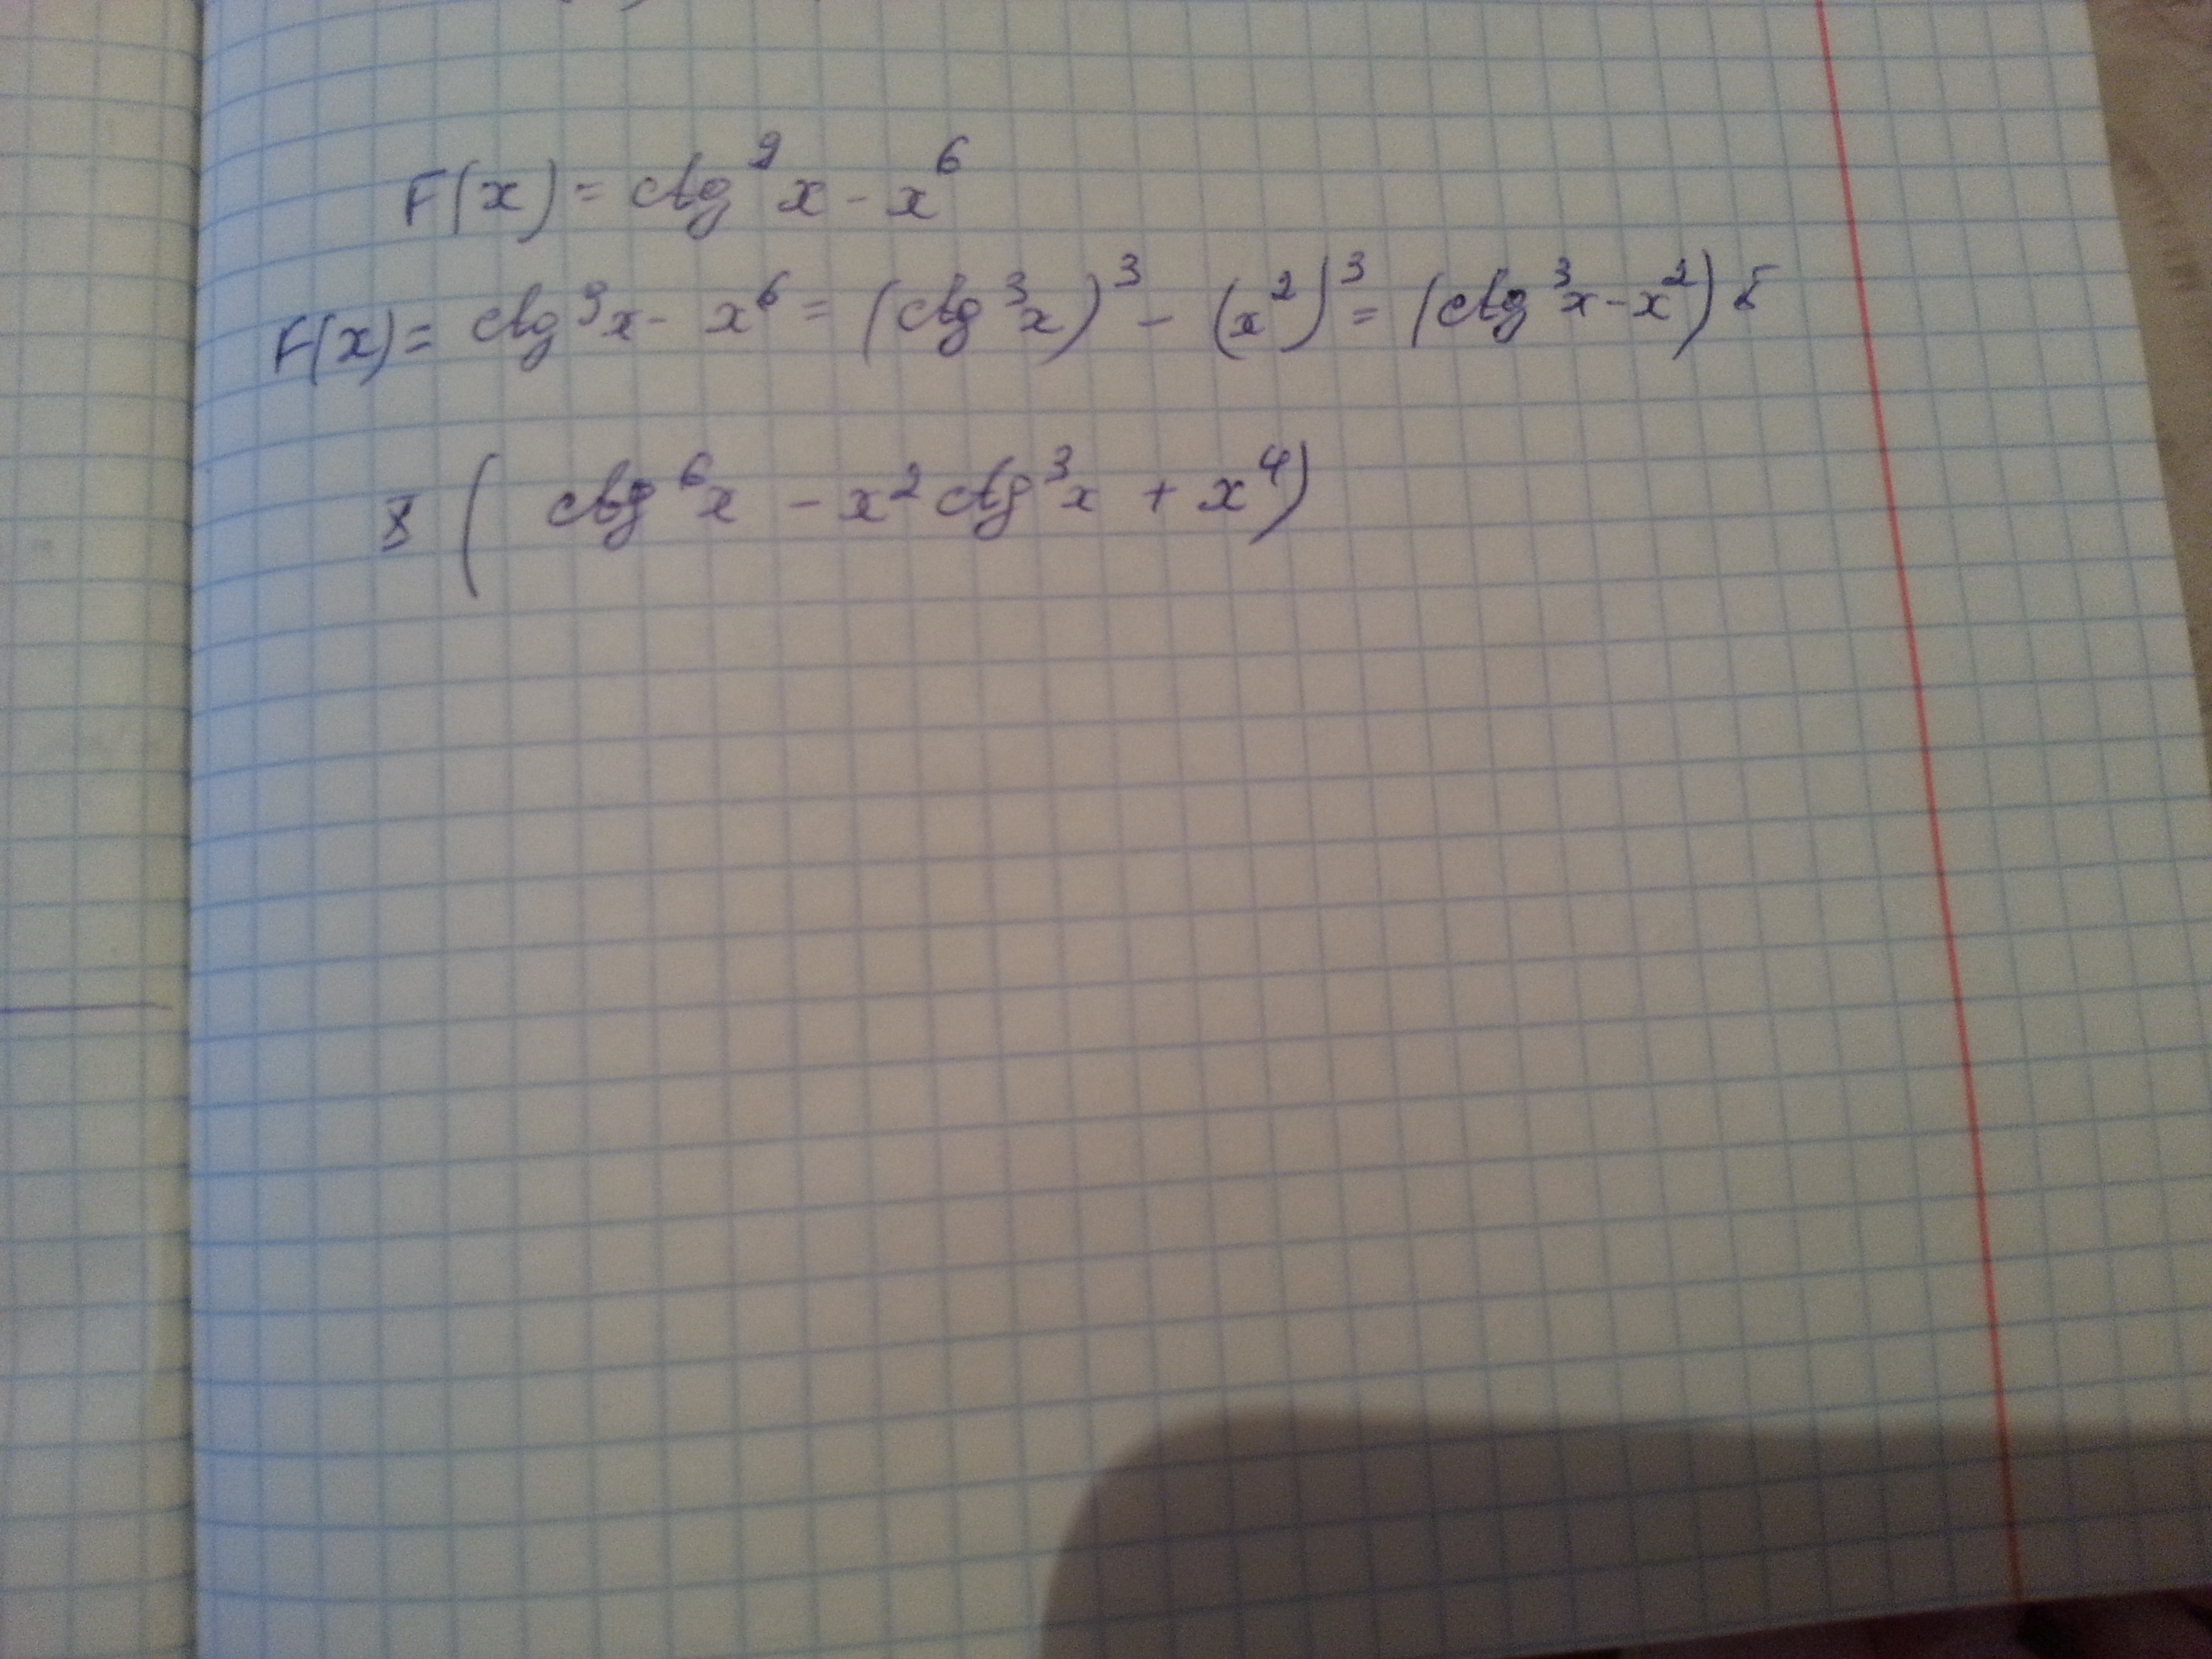 F(x) = ctg⁹x - x⁶
F(x) = ctg⁹x - x⁶ = (ctg³x)³ - (x²)³ = (ctg³x - x²) ×
× ( ctg⁶x - x² ctg³x + x⁴)